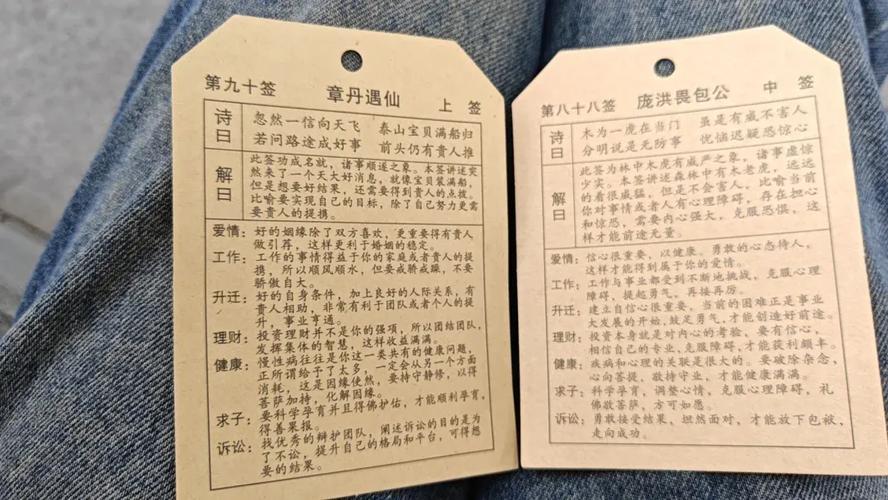 第九十签 章丹遇仙 上签
诗曰
忽然一信向天飞 泰山宝贝满船归
若问路途成好事 前头仍有贵人推
解曰
此签功成名就，诸事顺遂之象。本签讲述突
然来了一个天大好消息，就像宝贝装满船，
但是想要好结果，还需要得到贵人的点拨。
比喻要实现自己的目标，除了自己努力更需
要贵人的提携。
爱情：好的姻缘除了双方喜欢，更重要得有贵人
做引荐，这样更利于婚姻的稳定。
工作：工作的事情得益于你的家庭或者贵人的提
携，所以顺风顺水，但要戒骄戒躁，不要
骄傲自大。
升迁：好的自身条件，加上良好的人际关系，有
贵人相助，非常有利于团队或者个人的提
升，事业亨通。
理财：投资理财并不是你的强项，所以团结团队，
发挥集体的智慧，这样收益满满。
健康：慢性病往往是你这一类共有的健康问题，
正所谓给予了太多，一定会从另一个方面
消耗，这是因缘使然，要持守静修，以得
菩萨加持，化解因缘。
求子：要科学孕育并且得佛护佑，才能顺利孕育，
得善果报。
诉讼：找优秀的辩护团队，阐述诉讼的目的是为
了不讼，提升自己的格局和平台，可得想
要的结果。
第八十八签 庞洪畏包公 中签
诗曰
木为一虎在当门 虽是有威不害人
分明说是无防事 忧恼迟疑恐惊心
解曰
此签为林中木虎有威严之象，诸事虚惊
少实。本签讲述森林中有木老虎，远远
的看很威猛，但是不会害人，比喻当前
你对事情或者人有心理障碍，存在担心
和惊恐，需要内心强大，克服恐惧，这
样才能前途无量。
爱情：信心很重要，以健康、勇敢的心态待人，
这样才能得到属于你的爱情。
工作：工作与事业都受到不断地挑战，克服心理
障碍，提起勇气，再接再厉。
升迁：建立自信心很重要，当前的困难正是事业
大发展的开始，鼓足勇气，才能创造好前途。
理财：投资本身就是对内心的考验，要有信心，
相信自己的专业，克服障碍，才能获利颇丰。
健康：疾病和心理的关联是很大的。要破除杂念，
心向菩提，敬持守业，才能健康满满。
求子：科学孕育，调整心情，克服心理障碍，礼
佛敬菩萨，方可如愿。
诉讼：勇敢接受结果，坦然面对，才能放下包袱，
走向成功。